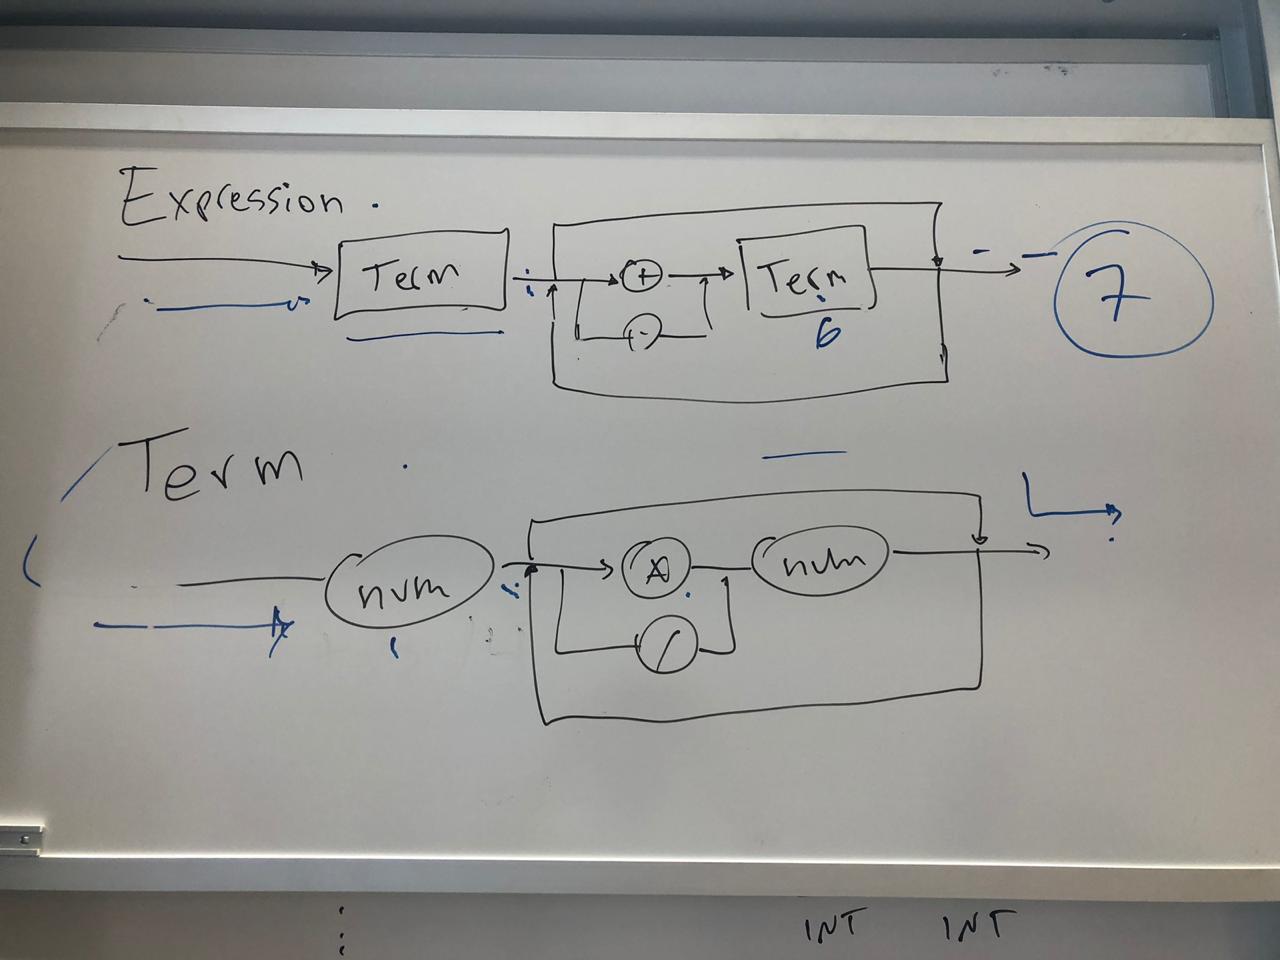 Expression.
Term
+
Term
-
6
7
Term
num
*
num
/
INT INT